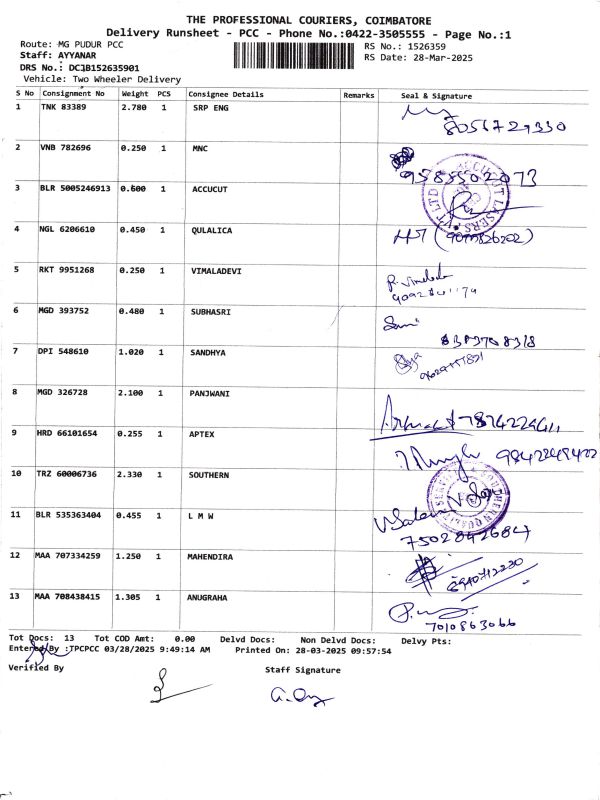 THE PROFESSIONAL COURIERS, COIMBATORE
Delivery Runsheet - PCC - Phone No.:0422-3505555 - Page No.:1
Route: MG PUDUR PCC
RS No.: 1526359
Staff: AYYANAR
RS Date: 28-Mar-2025
DRS No.: DC1B152635901
Vehicle: Two Wheeler Delivery
S No Consignment No Weight PCS Consignee Details Remarks Seal & Signature
1 TNK 83389 2.780 1 SRP ENG
8056729330
2 VNB 782696 0.250 1 MNC
9585502073
3 BLR 5005246913 0.600 1 ACCUCUT
4 NGL 6206610 0.450 1 QULALICA
5 RKT 9951268 0.250 1 VIMALADEVI
6 MGD 393752 0.480 1 SUBHASRI
7 DPI 548610 1.020 1 SANDHYA
8 MGD 326728 2.100 1 PANJWANI
9 HRD 66101654 0.255 1 APTEX
10 TRZ 60006736 2.330 1 SOUTHERN
11 BLR 535363404 0.455 1 L M W
7502842684
12 MAA 707334259 1.250 1 MAHENDIRA
13 MAA 708438415 1.305 1 ANUGRAHA
7010863066
Tot Docs: 13 Tot COD Amt: 0.00 Delvd Docs: Non Delvd Docs: Delvy Pts:
Entered By :TPCPCC 03/28/2025 9:49:14 AM Printed On: 28-03-2025 09:57:54
Verified By Staff Signature